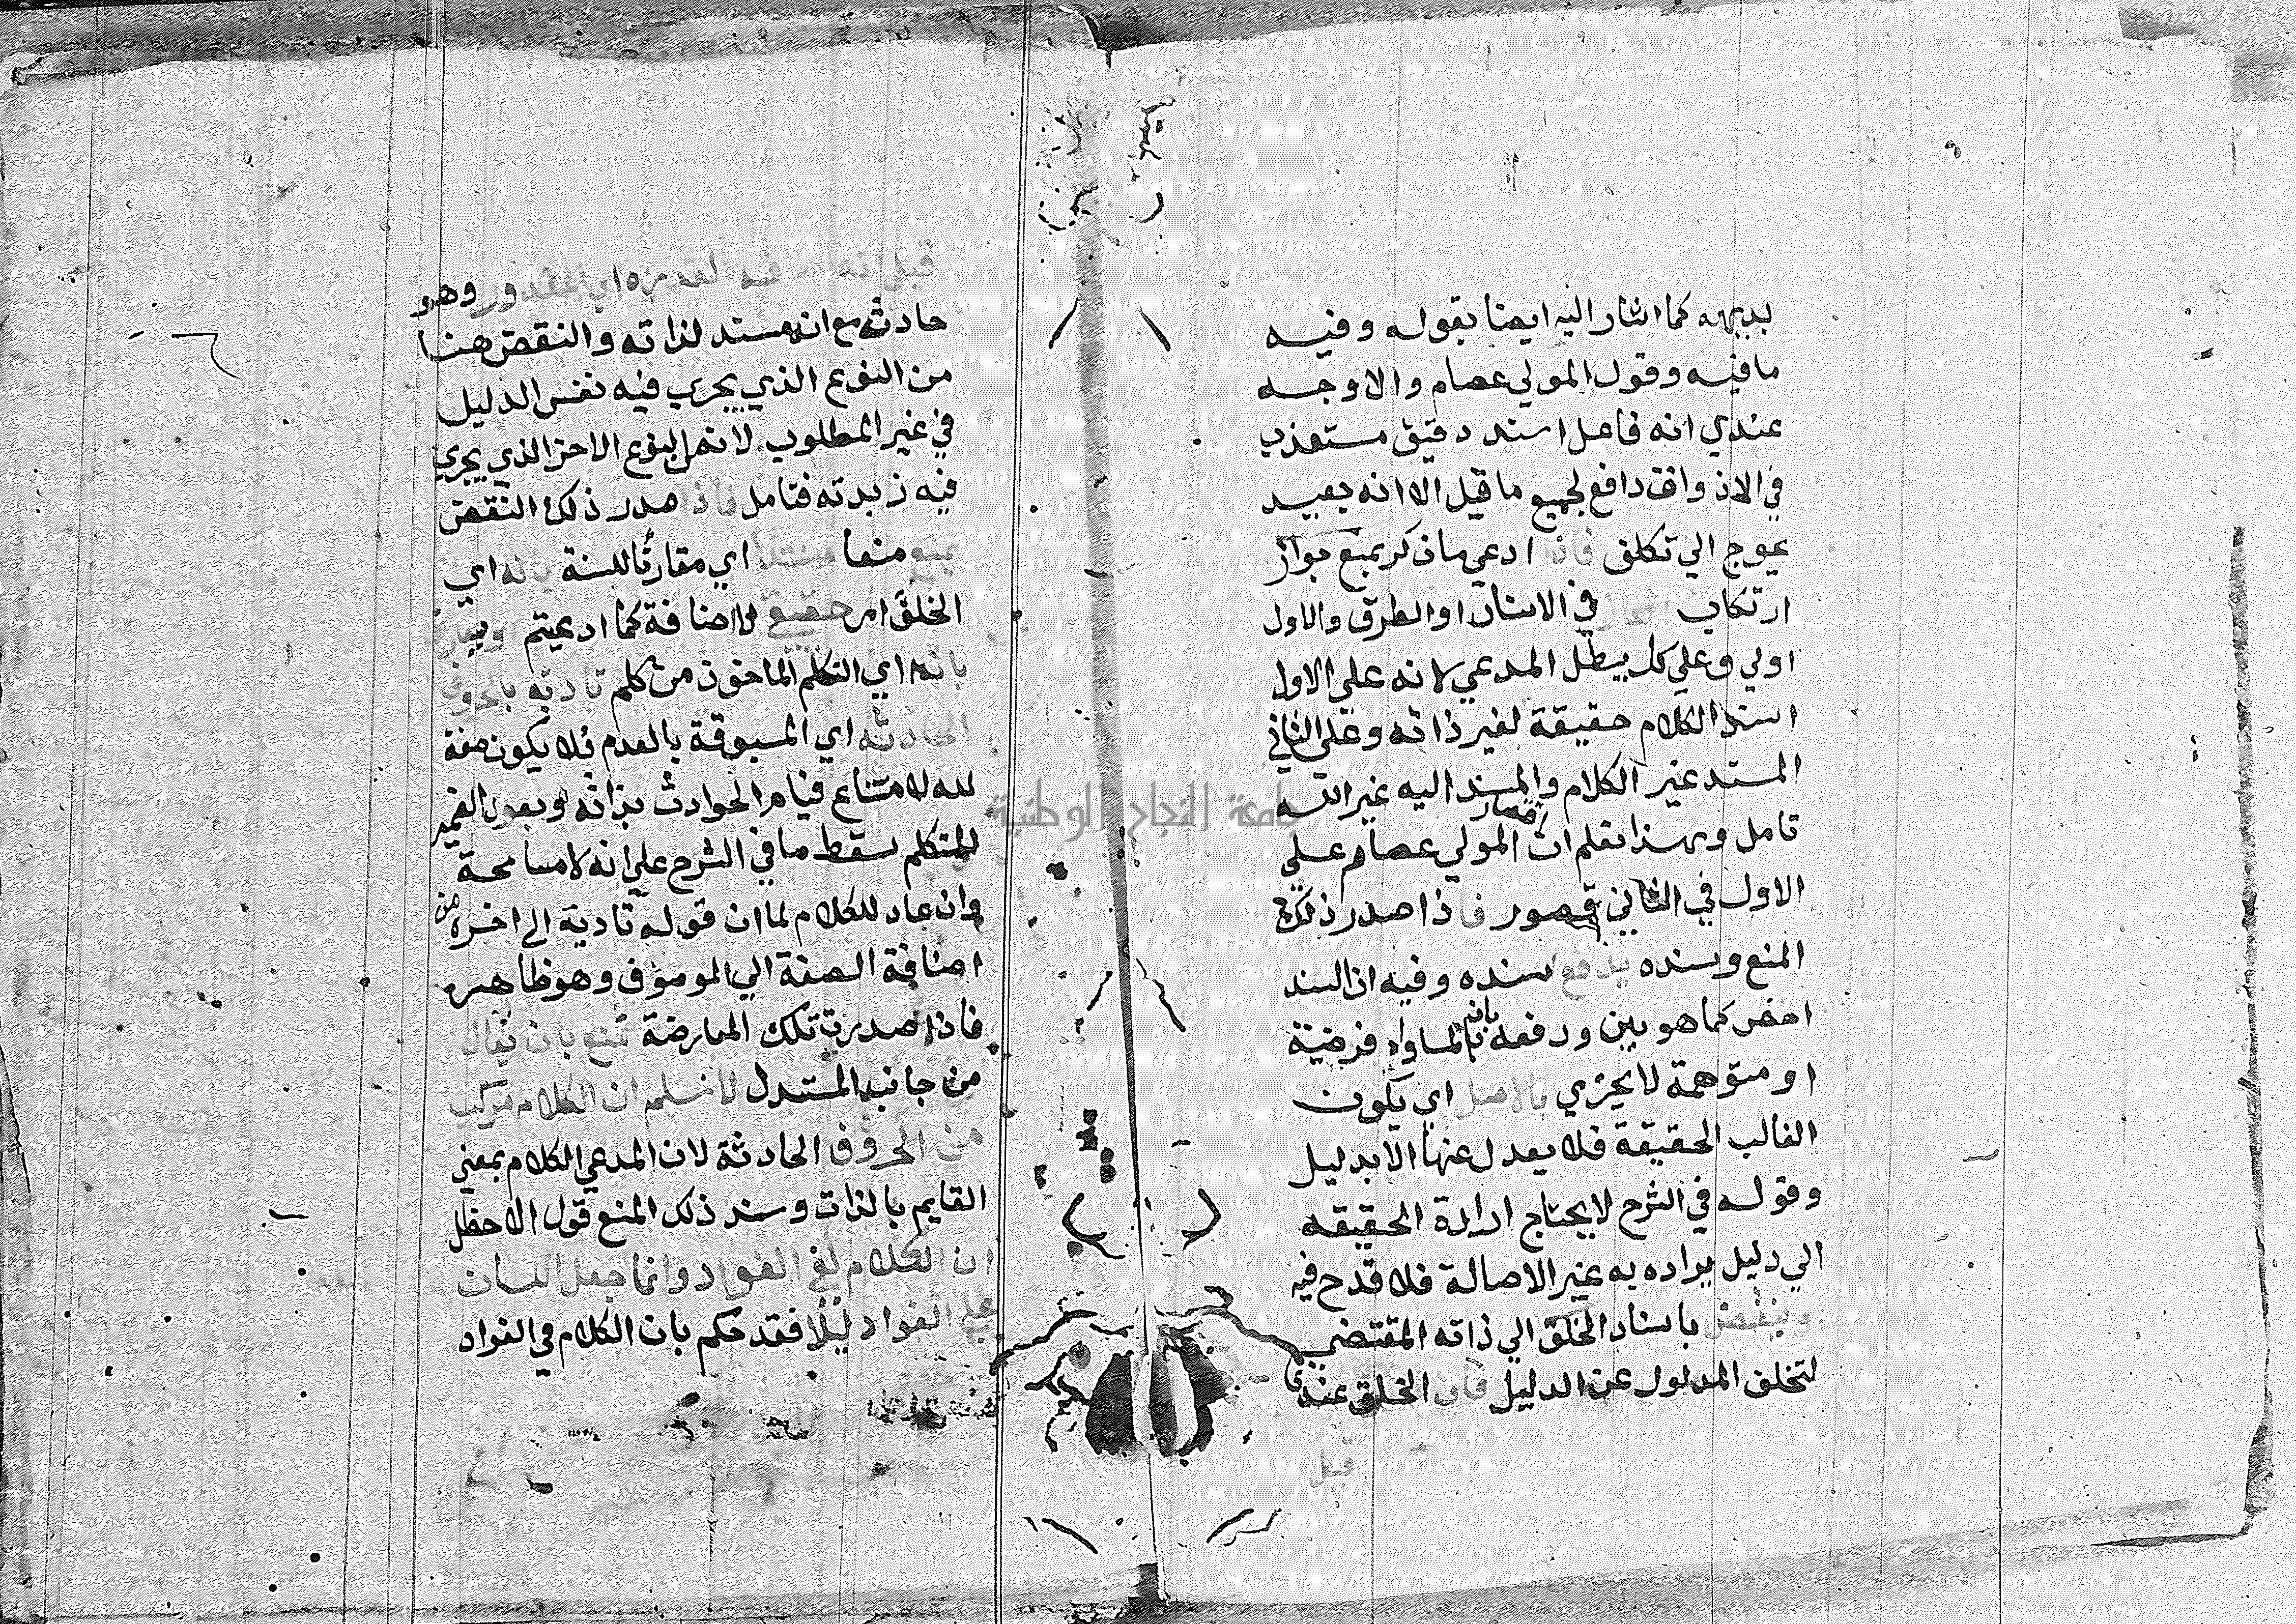 بديهه كما اشار اليه ايضا بقوله وفيه
ما فيه وقول المولي عصام والاوجه
عندي انه فاعل اسند دقيق مستعذب
في الاذواق دافع لجميع ما قيل الا انه بعيد
يحوج الي تكلف فاذا ادعي ما ذكر يمنع جواز
ارتكاب المجاز في الاسناد او الطرق والاول
اولي وعلي كل يبطل المدعي لانه علي الاول
اسند الكلام حقيقة لغير ذاته وعلي الثاني
المستد غير الكلام والمسند اليه غير الله
تامل وبهذا تعلم ان اقتصار المولي عصام علي
الاول في الثاني قصور فاذا صدر ذلك
المنع وسنده يدفع سنده وفيه ان السند
اخص كما هو بين ودفعه بانه لمساواه فرضية
او متوهمة لا يجزي بالاصل اي يكون
الغالب الحقيقة فلا يعدل عنها الا بدليل
وقوله في الشرح لا يحتاج ارادة الحقيقه
الي دليل يراده به غير الاصالة فلا قدح فيه
وينقض باسناد الخلق الي ذاته المقتضي
لتخلف المدلول عن الدليل فان الخلق عند
قيل
قيل انه اضافه القدره اي المقدور وهو
حادث مع انه مسند لذاته والنقض هنا
من النوع الذي يجري فيه نفس الدليل
في غير المطلوب لا من النوع الاخر الذي يجري
فيه زبدته فتامل فاذا صدر ذلك النقض
يمنع منعا مستندا اي مقارنا للسنة بانه اي
الخلق امر حقيقي لا اضافة كما ادعيتم او يعارض
بانه اي التكلم الماخوذ من كلم تاديه بالحروف
الحادثه اي المسبوقة بالعدم فلا يكون صفة
لله لامتناع قيام الحوادث بذاته وبعود الضمير
للمتكلم سقط ما في الشرح علي انه لا مسامحة
وان عاد للكلام لما ان قوله تادية الي اخره من
اضافة الصفة الي الموصوف وهو ظاهر
فاذا صدرت تلك المعارضة تمنع بان يقال
من جانب المستدل لا نسلم ان الكلام مركب
من الحروف الحادثة لان المدعي الكلام بمعني
القايم بالذات وسند ذلك المنع قول الاخطل
ان الكلام لفي الفواد وانما جعل اللسان
علي الفواد ليلا فقد حكم بان الكلام في الفواد
جامعة النجاح الوطنية